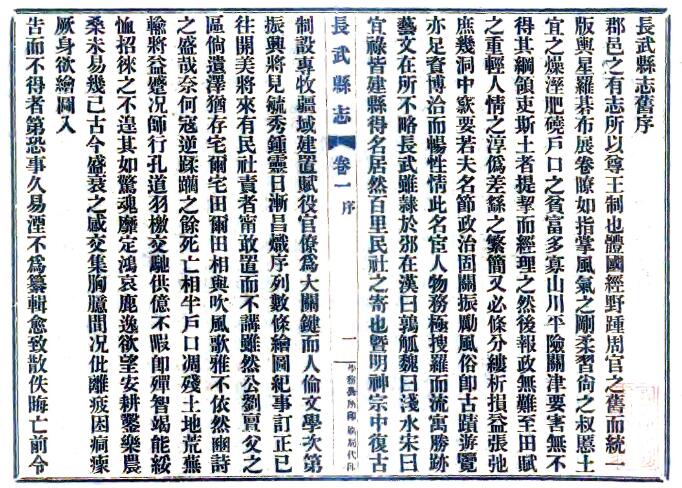 長武縣志舊序
郡邑之有志所以尊王制也體國經野踵周官之舊而統一
版輿星羅棊布展卷瞭如指掌風氣之剛柔習尙之叔慝土
宜之燥溼肥磽戶口之貧富多寡山川平險關津要害無不
得其綱領吏斯土者提挈而經理之然後報政無難至田賦
之重輕人情之淳僞差繇之繁簡又必條分縷析損益張弛
庶幾洞中窾要若夫名節政治固關振勵風俗卽古蹟遊覽
亦足資博洽而暢性情此名宦人物務極搜羅而流寓勝跡
藝文在所不略長武雖隸於邠在漢曰鶉觚魏曰淺水宋曰
宜祿皆建縣得名居然百里民社之寄也暨明神宗中復古
長武縣志
卷一
序
一
制設專牧疆域建置賦役官僚爲大關鍵而人倫文學次第
振興將見毓秀鍾靈日漸昌熾序列數條繪圖紀事訂正已
往開美將來有民社責者甯敢置而不講雖然公劉亶父之
區倘遺澤猶存宅爾宅田爾田相與吹風歌雅不依然豳詩
之盛哉奈何寇逆蹂躪之餘死亡相半戶口凋殘土地荒蕪
輸將益蹙况師行孔道羽檄交馳供億不暇卽殫智竭能綏
恤招徠之不遑其如驚魂靡定鴻哀鹿逸欲望安耕鑿樂農
桑未易幾已古今盛衰之感交集胸臆間况仳離疲困瘨瘝
厥身欲繪圖入
告而不得者第恐事久易湮不爲纂輯愈致散佚晦亡前令